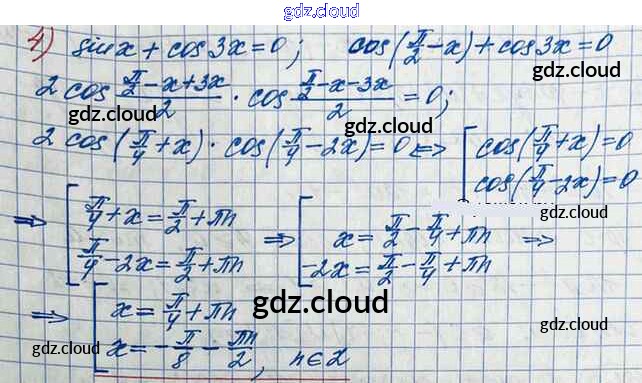 gdz.cloud
4) sin x + cos 3x = 0; cos(π/2 − x) + cos 3x = 0
gdz.cloud
2 cos (π/2 − x + 3x)/2 · cos (π/2 − x − 3x)/2 = 0;
gdz.cloud gdz.cloud
2 cos(π/4 + x) · cos(π/4 − 2x) = 0 <=> [ cos(π/4 + x) = 0
cos(π/4 − 2x) = 0
gdz.cloud gdz.cloud
=> [ π/4 + x = π/2 + πn => [ x = π/2 − π/4 + πn =>
π/4 − 2x = π/2 + πn −2x = π/2 − π/4 + πn
gdz.cloud
=> [ x = π/4 + πn
gdz.cloud
x = − π/8 − πn/2, n∈Z
gdz.cloud gdz.cloud